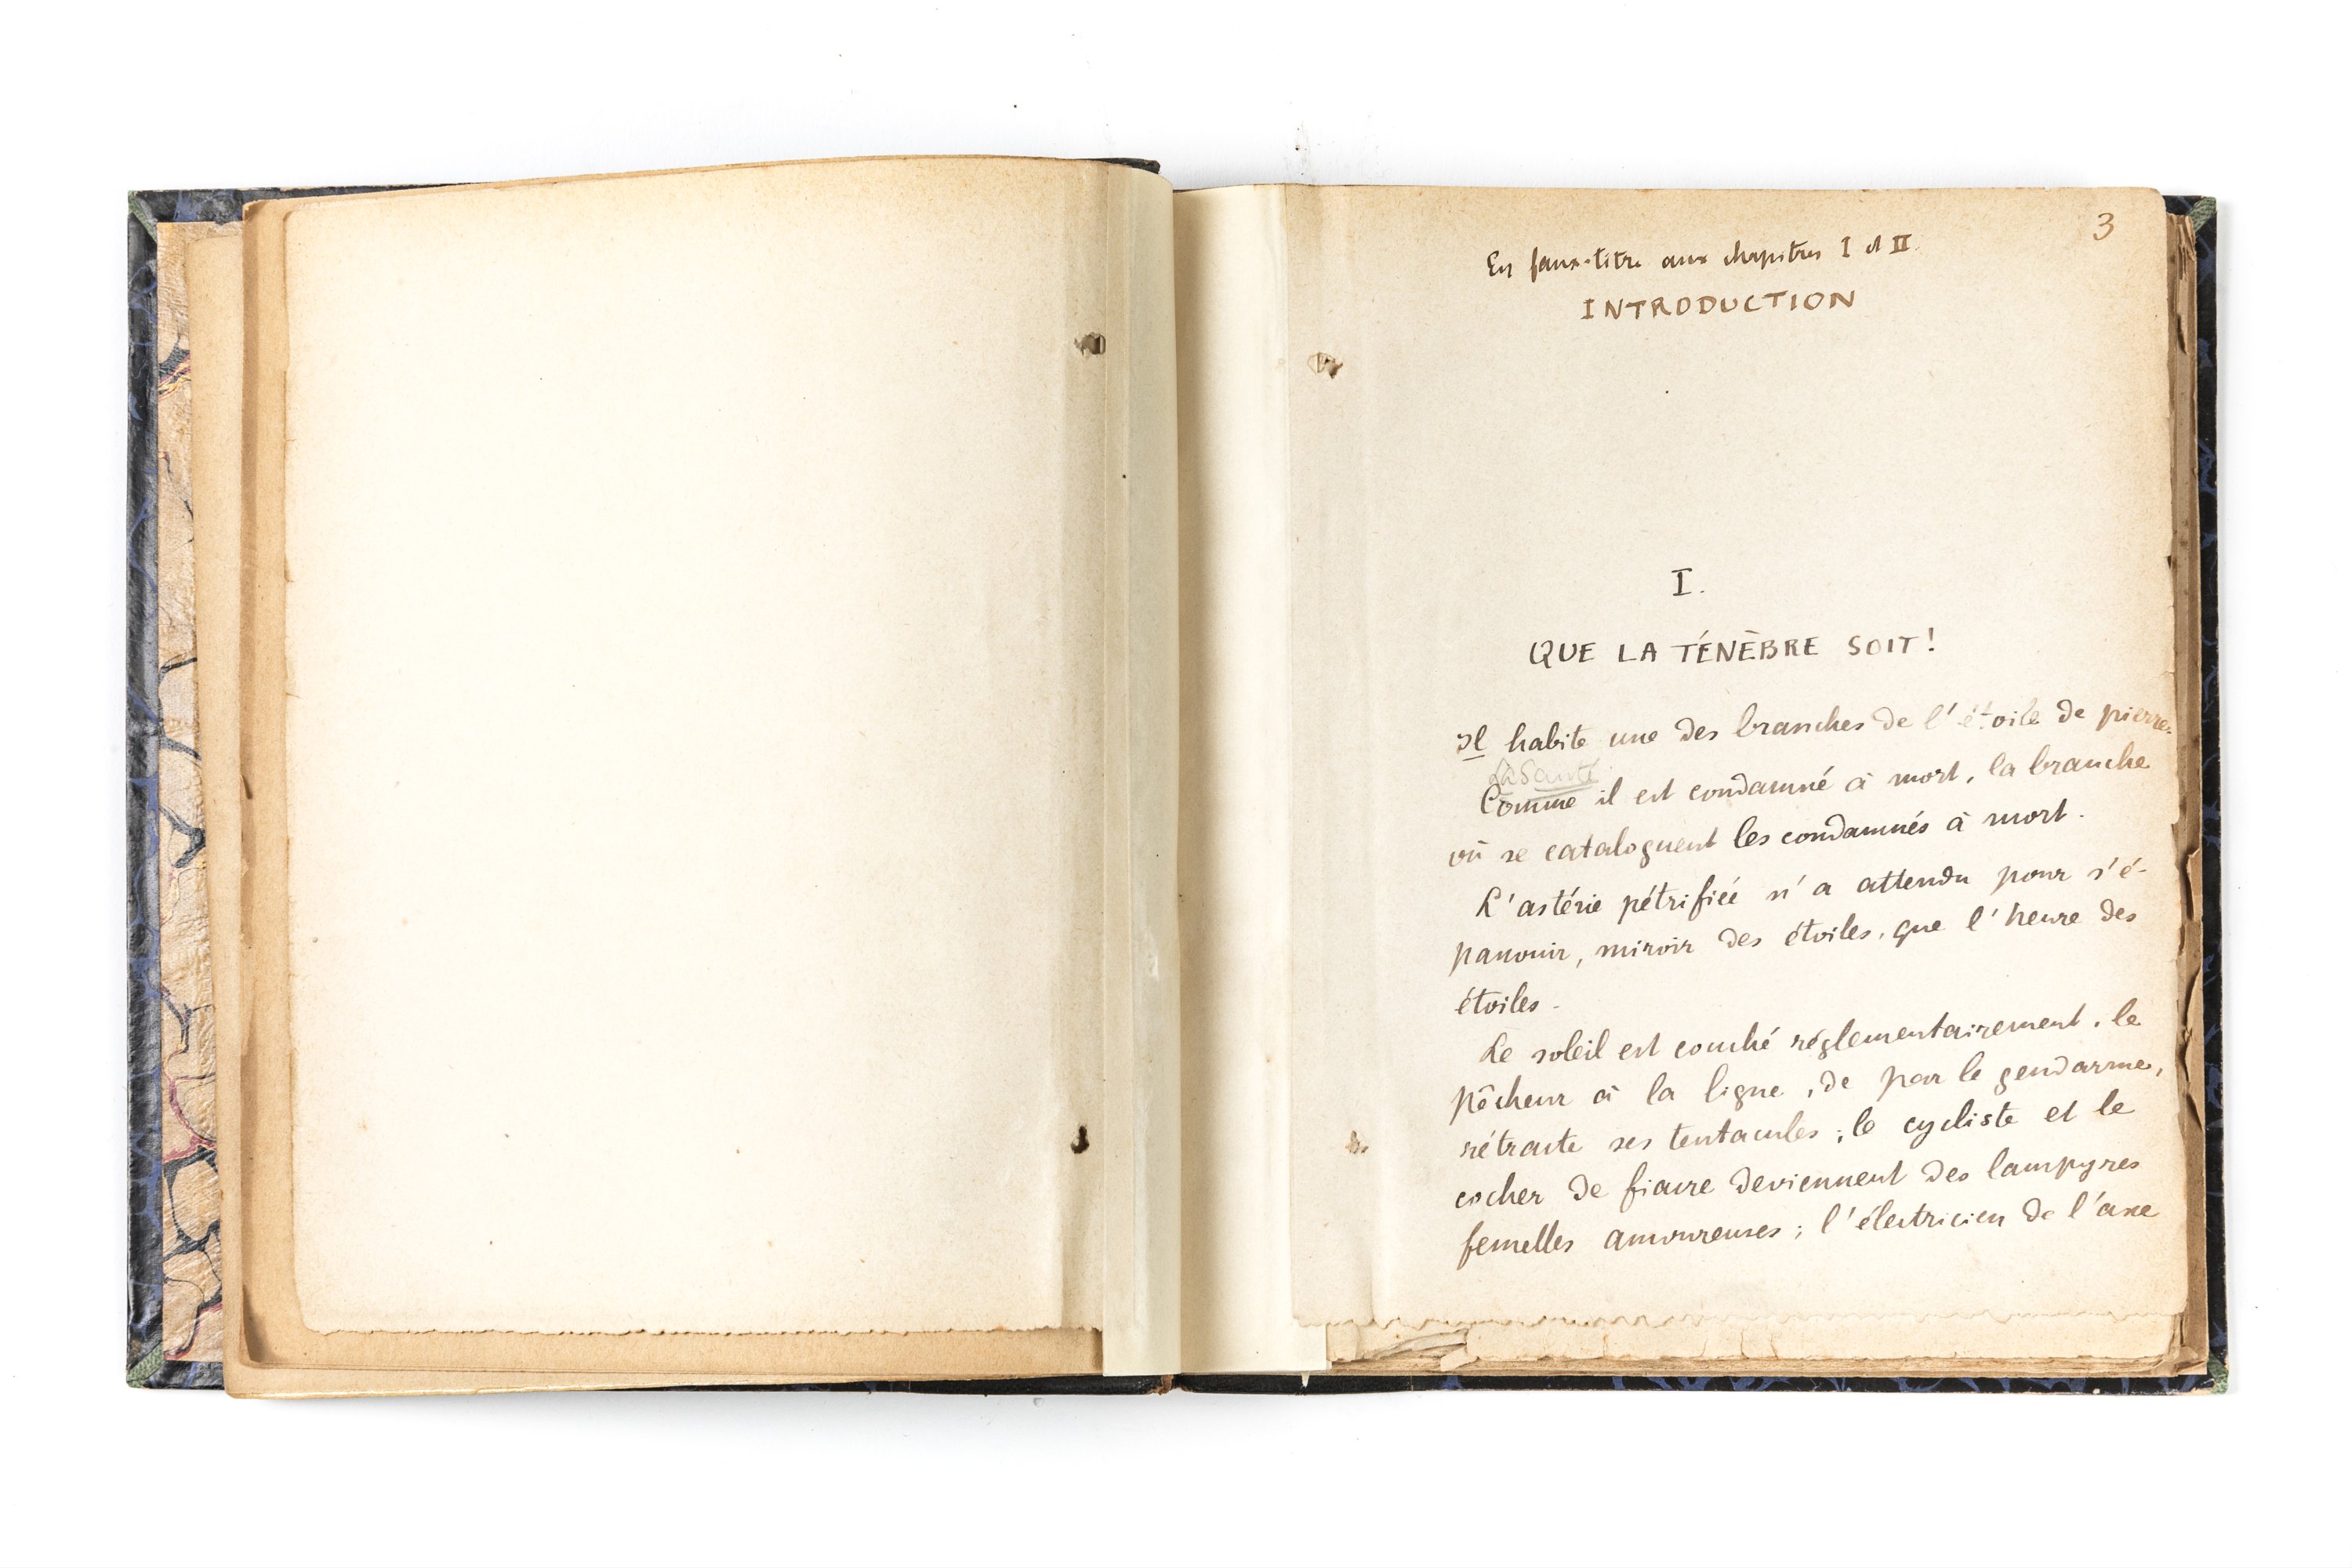 3
En faux-titre aux chapitres I et II
INTRODUCTION
I.
QUE LA TÉNÈBRE SOIT!
Il habite une des branches de l'étoile de pierre.
La Santé
Comme il est condamné à mort, la branche
où se cataloguent les condamnés à mort.
L'astérie pétrifiée n'a attendu pour s'é-
panouir, miroir des étoiles, que l'heure des
étoiles.
Le soleil est couché réglementairement, le
pêcheur à la ligne, de par le gendarme,
rétracte ses tentacules; le cycliste et le
cocher de fiacre deviennent des lampyres
femelles amoureuses; l'électricien de l'axe